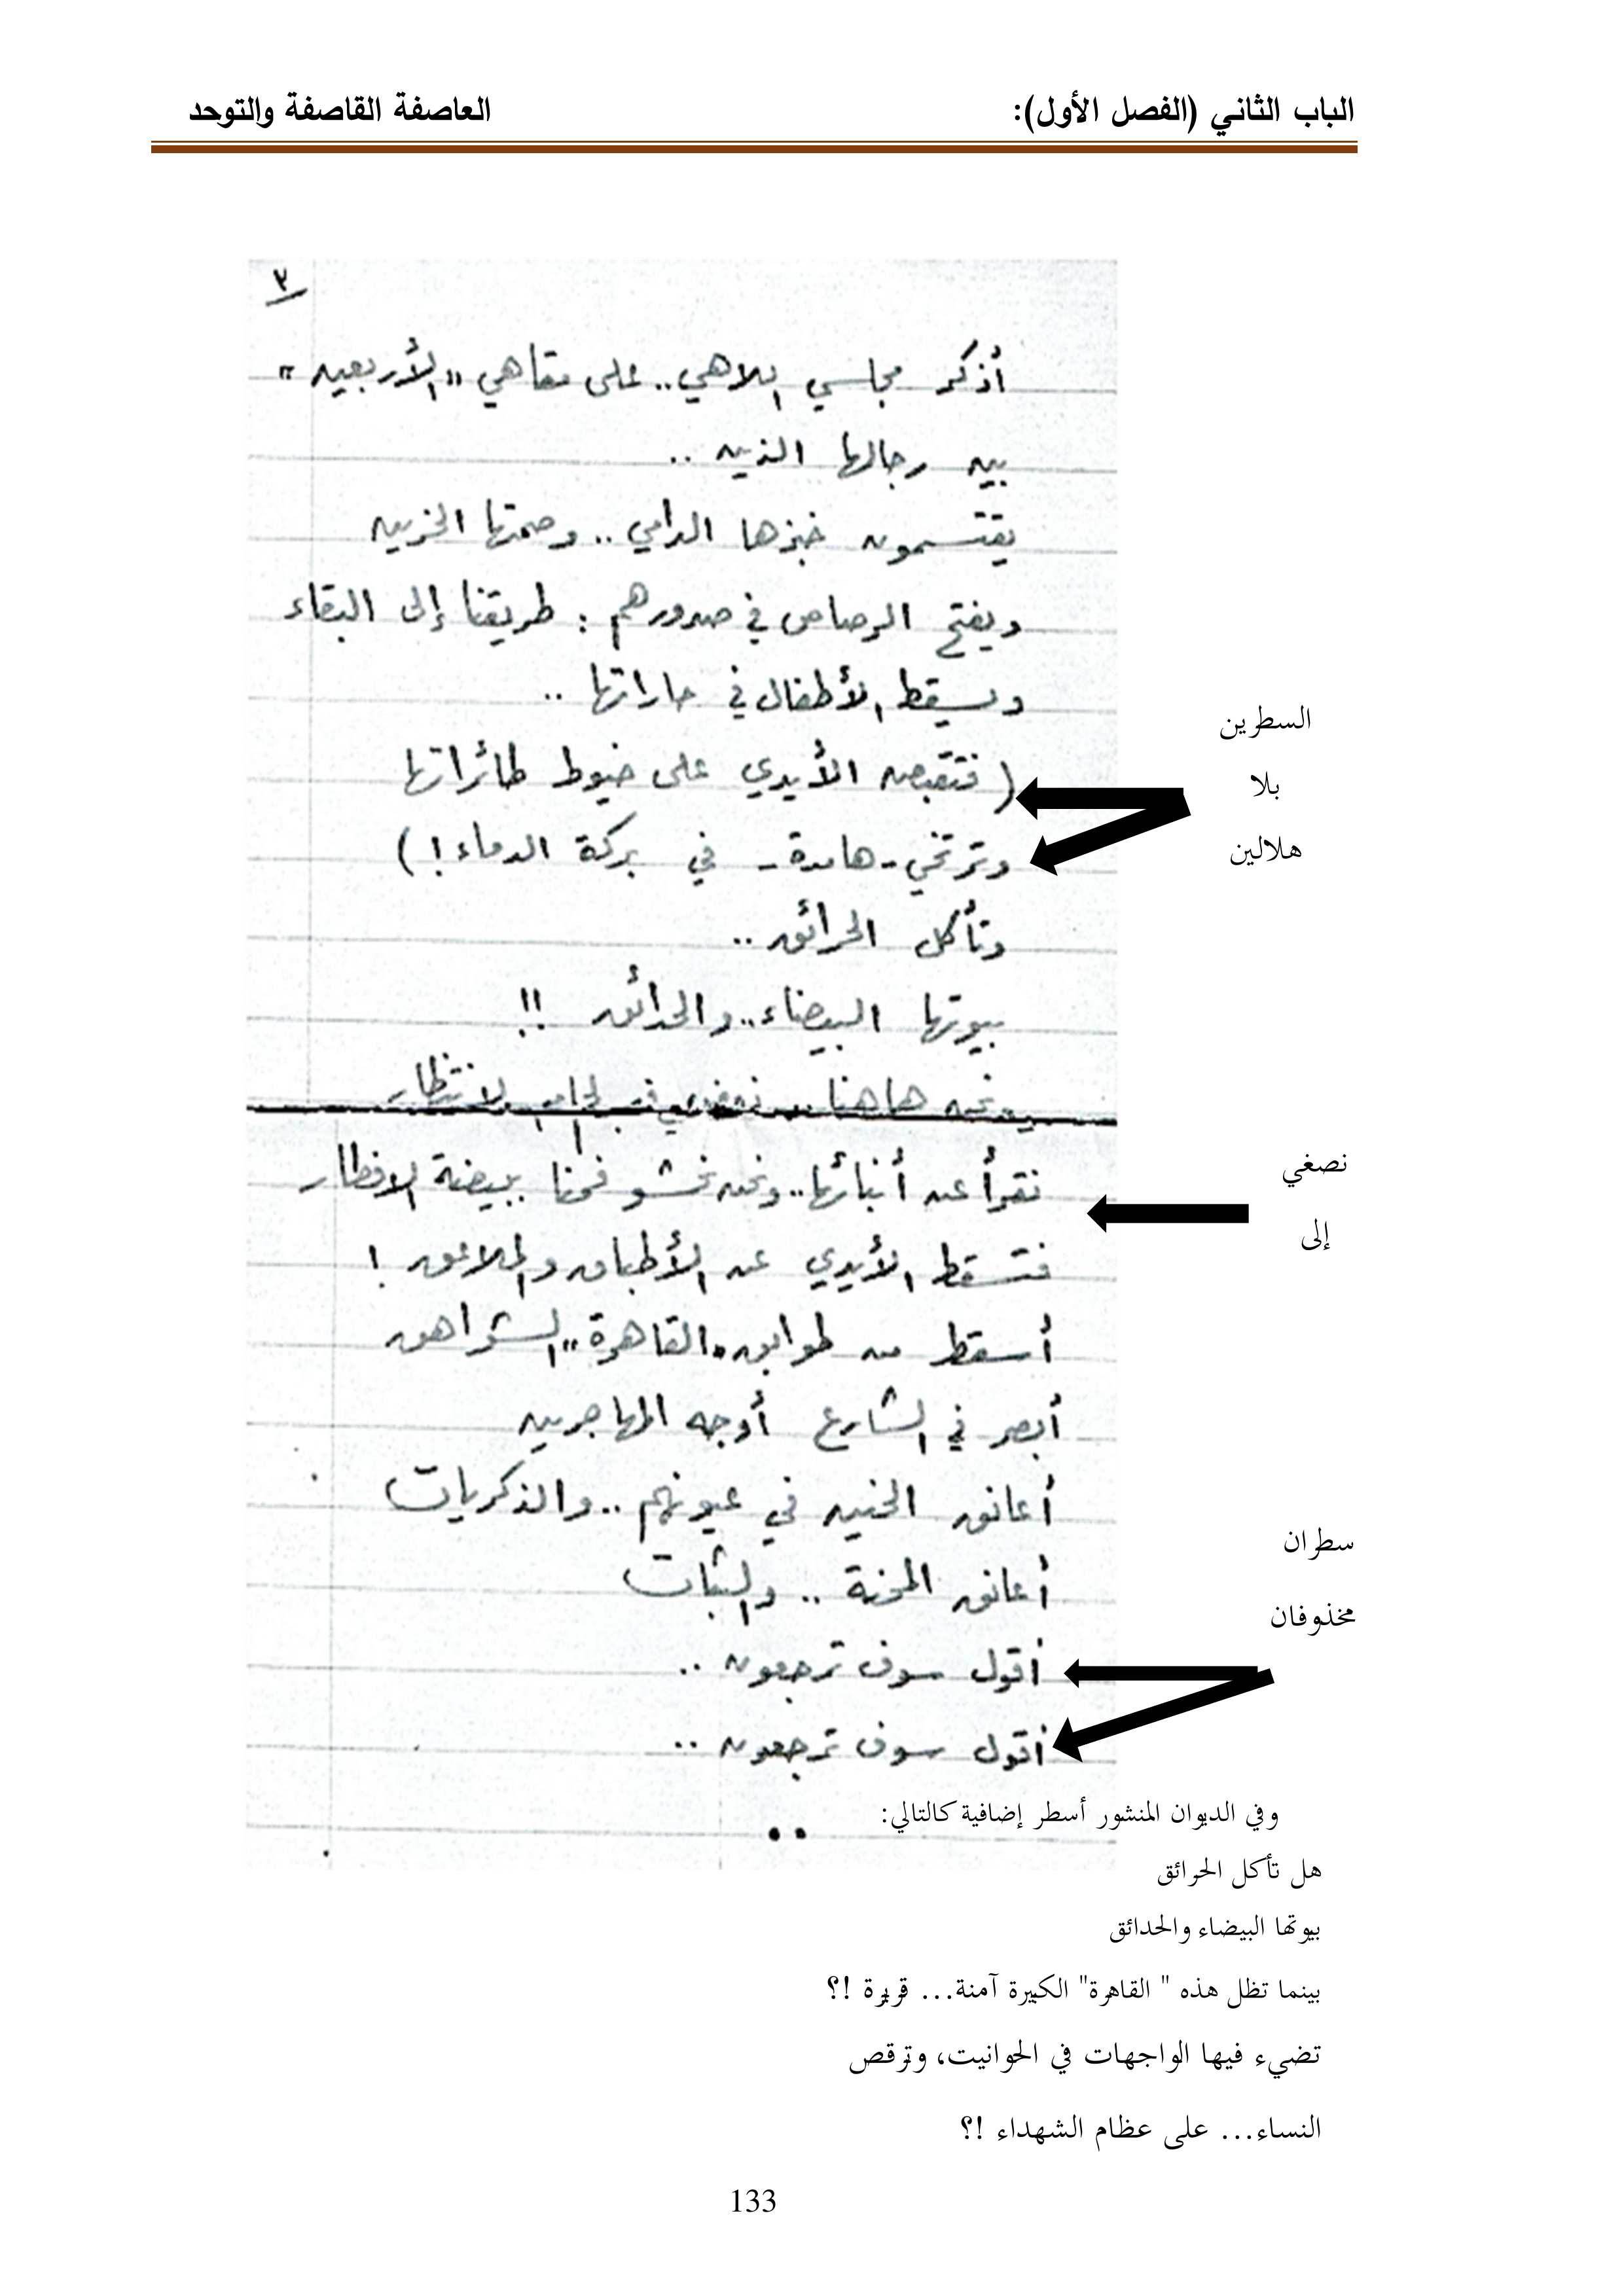 الباب الثاني (الفصل الأول): العاصفة القاصفة والتوحد
٣
أذكر مجلسي اللاهي.. على مقاهي "الأربعين"
بين رجالها الذين ..
يقتسمون خبزها الدامي.. وصمتها الحزين
ويفتح الرصاص في صدورهم : طريقنا إلى البقاء
ويسقط الأطفال في حاراتها ..
السطرين
(فتقبض الأيدي على خيوط طائراتها
بلا
وترتخي - هامدة - في بركة الدماء!)
هلالين
وتأكل الحرائق ..
بيوتها البيضاء.. والحدائق !!
ونحن هاهنا .. الانتظار
نقرأ عن أنبائها.. ونحن نحشو فمنا ببيضة الافطار
نصغي
إلى
فتسقط الأيدي عن الأطباق والملاعق !
أسقط من طوابق "القاهرة" الشواهق
أبصر في الشارع أوجه المهاجرين
أعانق الحنين في عيونهم .. والذكريات
أعانق المحنة .. والثبات
سطران
مخذوفان
أقول سوف ترجعون ..
أقول سوف ترجعون ..
..
وفي الديوان المنشور أسطر إضافية كالتالي:
هل تأكل الحرائق
بيوتها البيضاء والحدائق
بينما تظل هذه " القاهرة" الكبيرة آمنة... قريرة !؟
تضيء فيها الواجهات في الحوانيت، وترقص
النساء... على عظام الشهداء !؟
133